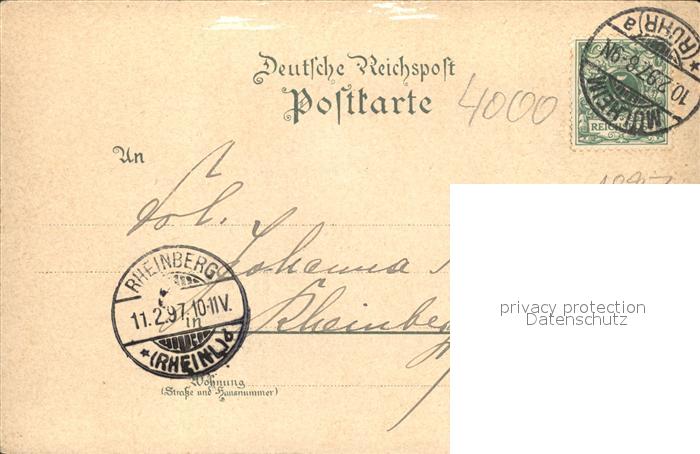 Deutsche Reichspost
Postkarte
4000
An
MÜLHEIM
10.2.97.8-9N.
*(RUHR)a
REICH
1897
Johanna
RHEINBERG
11.2.97.10-11V.
*(RHEINL)d
in
Rheinbe
Wohnung
(Straße und Hausnummer)
privacy protection
Datenschutz